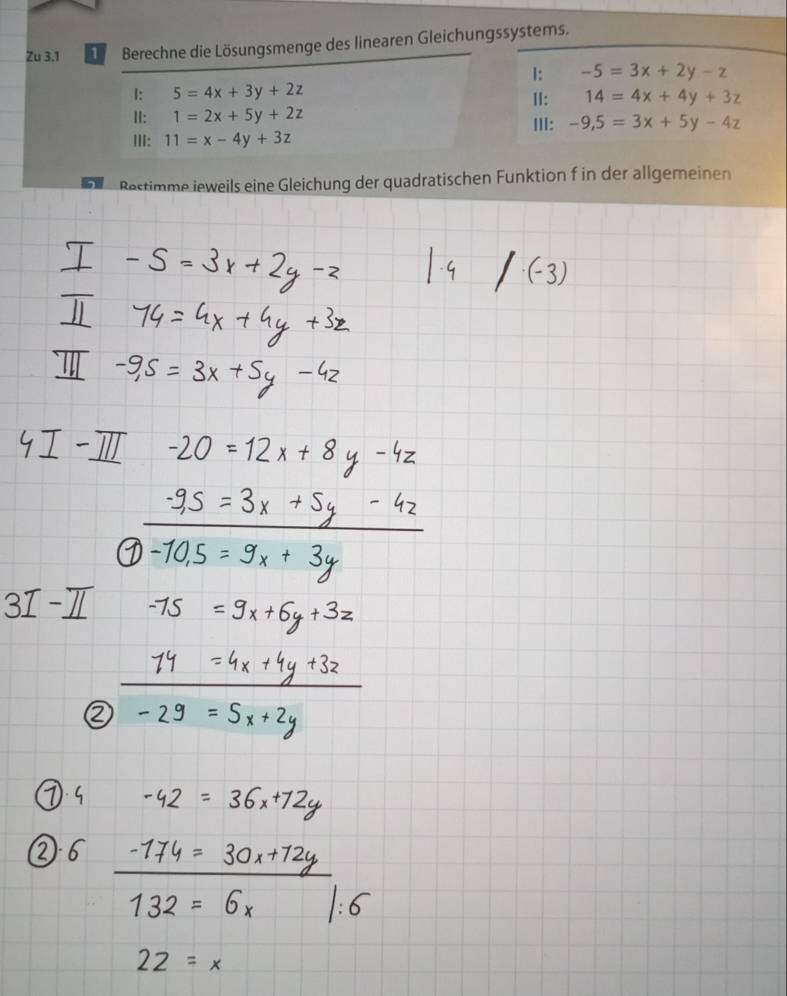 Zu 3.1 1 Berechne die Lösungsmenge des linearen Gleichungssystems.
I: 5 = 4x + 3y + 2z
II: 1 = 2x + 5y + 2z
III: 11 = x − 4y + 3z
I: −5 = 3x + 2y − z
II: 14 = 4x + 4y + 3z
III: −9,5 = 3x + 5y − 4z
2 Bestimme jeweils eine Gleichung der quadratischen Funktion f in der allgemeinen
I -5 = 3x + 2y - z |·4 /·(-3)
II 14 = 4x + 4y + 3z
III -9,5 = 3x + 5y - 4z
4I - III -20 = 12x + 8y - 4z
-9,5 = 3x + 5y - 4z
① -10,5 = 9x + 3y
3I - II -15 = 9x + 6y + 3z
14 = 4x + 4y + 3z
② -29 = 5x + 2y
①·4 -42 = 36x + 12y
②·6 -174 = 30x + 12y
132 = 6x |:6
22 = x